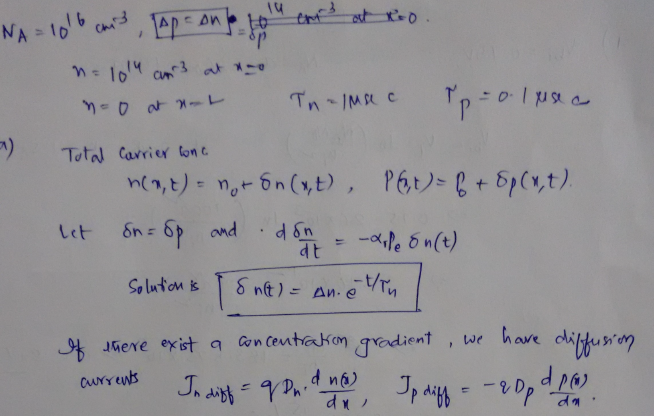 N_A = 10^16 cm^-3, Δp = Δn = 10^14 cm^-3 at x=0.
δp
n = 10^14 cm^-3 at x=0
n = 0 at x=L τ_n = 1 μsec τ_p = 0.1 μsec
a) Total Carrier Conc
n(x,t) = n_0 + δn(x,t), P(x,t) = P_0 + δp(x,t).
Let δn = δp and dδn/dt = -α_r P_0 δn(t)
Solution is δn(t) = Δn. e^-t/τ_n
If there exist a concentration gradient, we have diffusion
currents J_n diff = q D_n. d n(x)/dx, J_p diff = -q D_p d p(x)/dx.